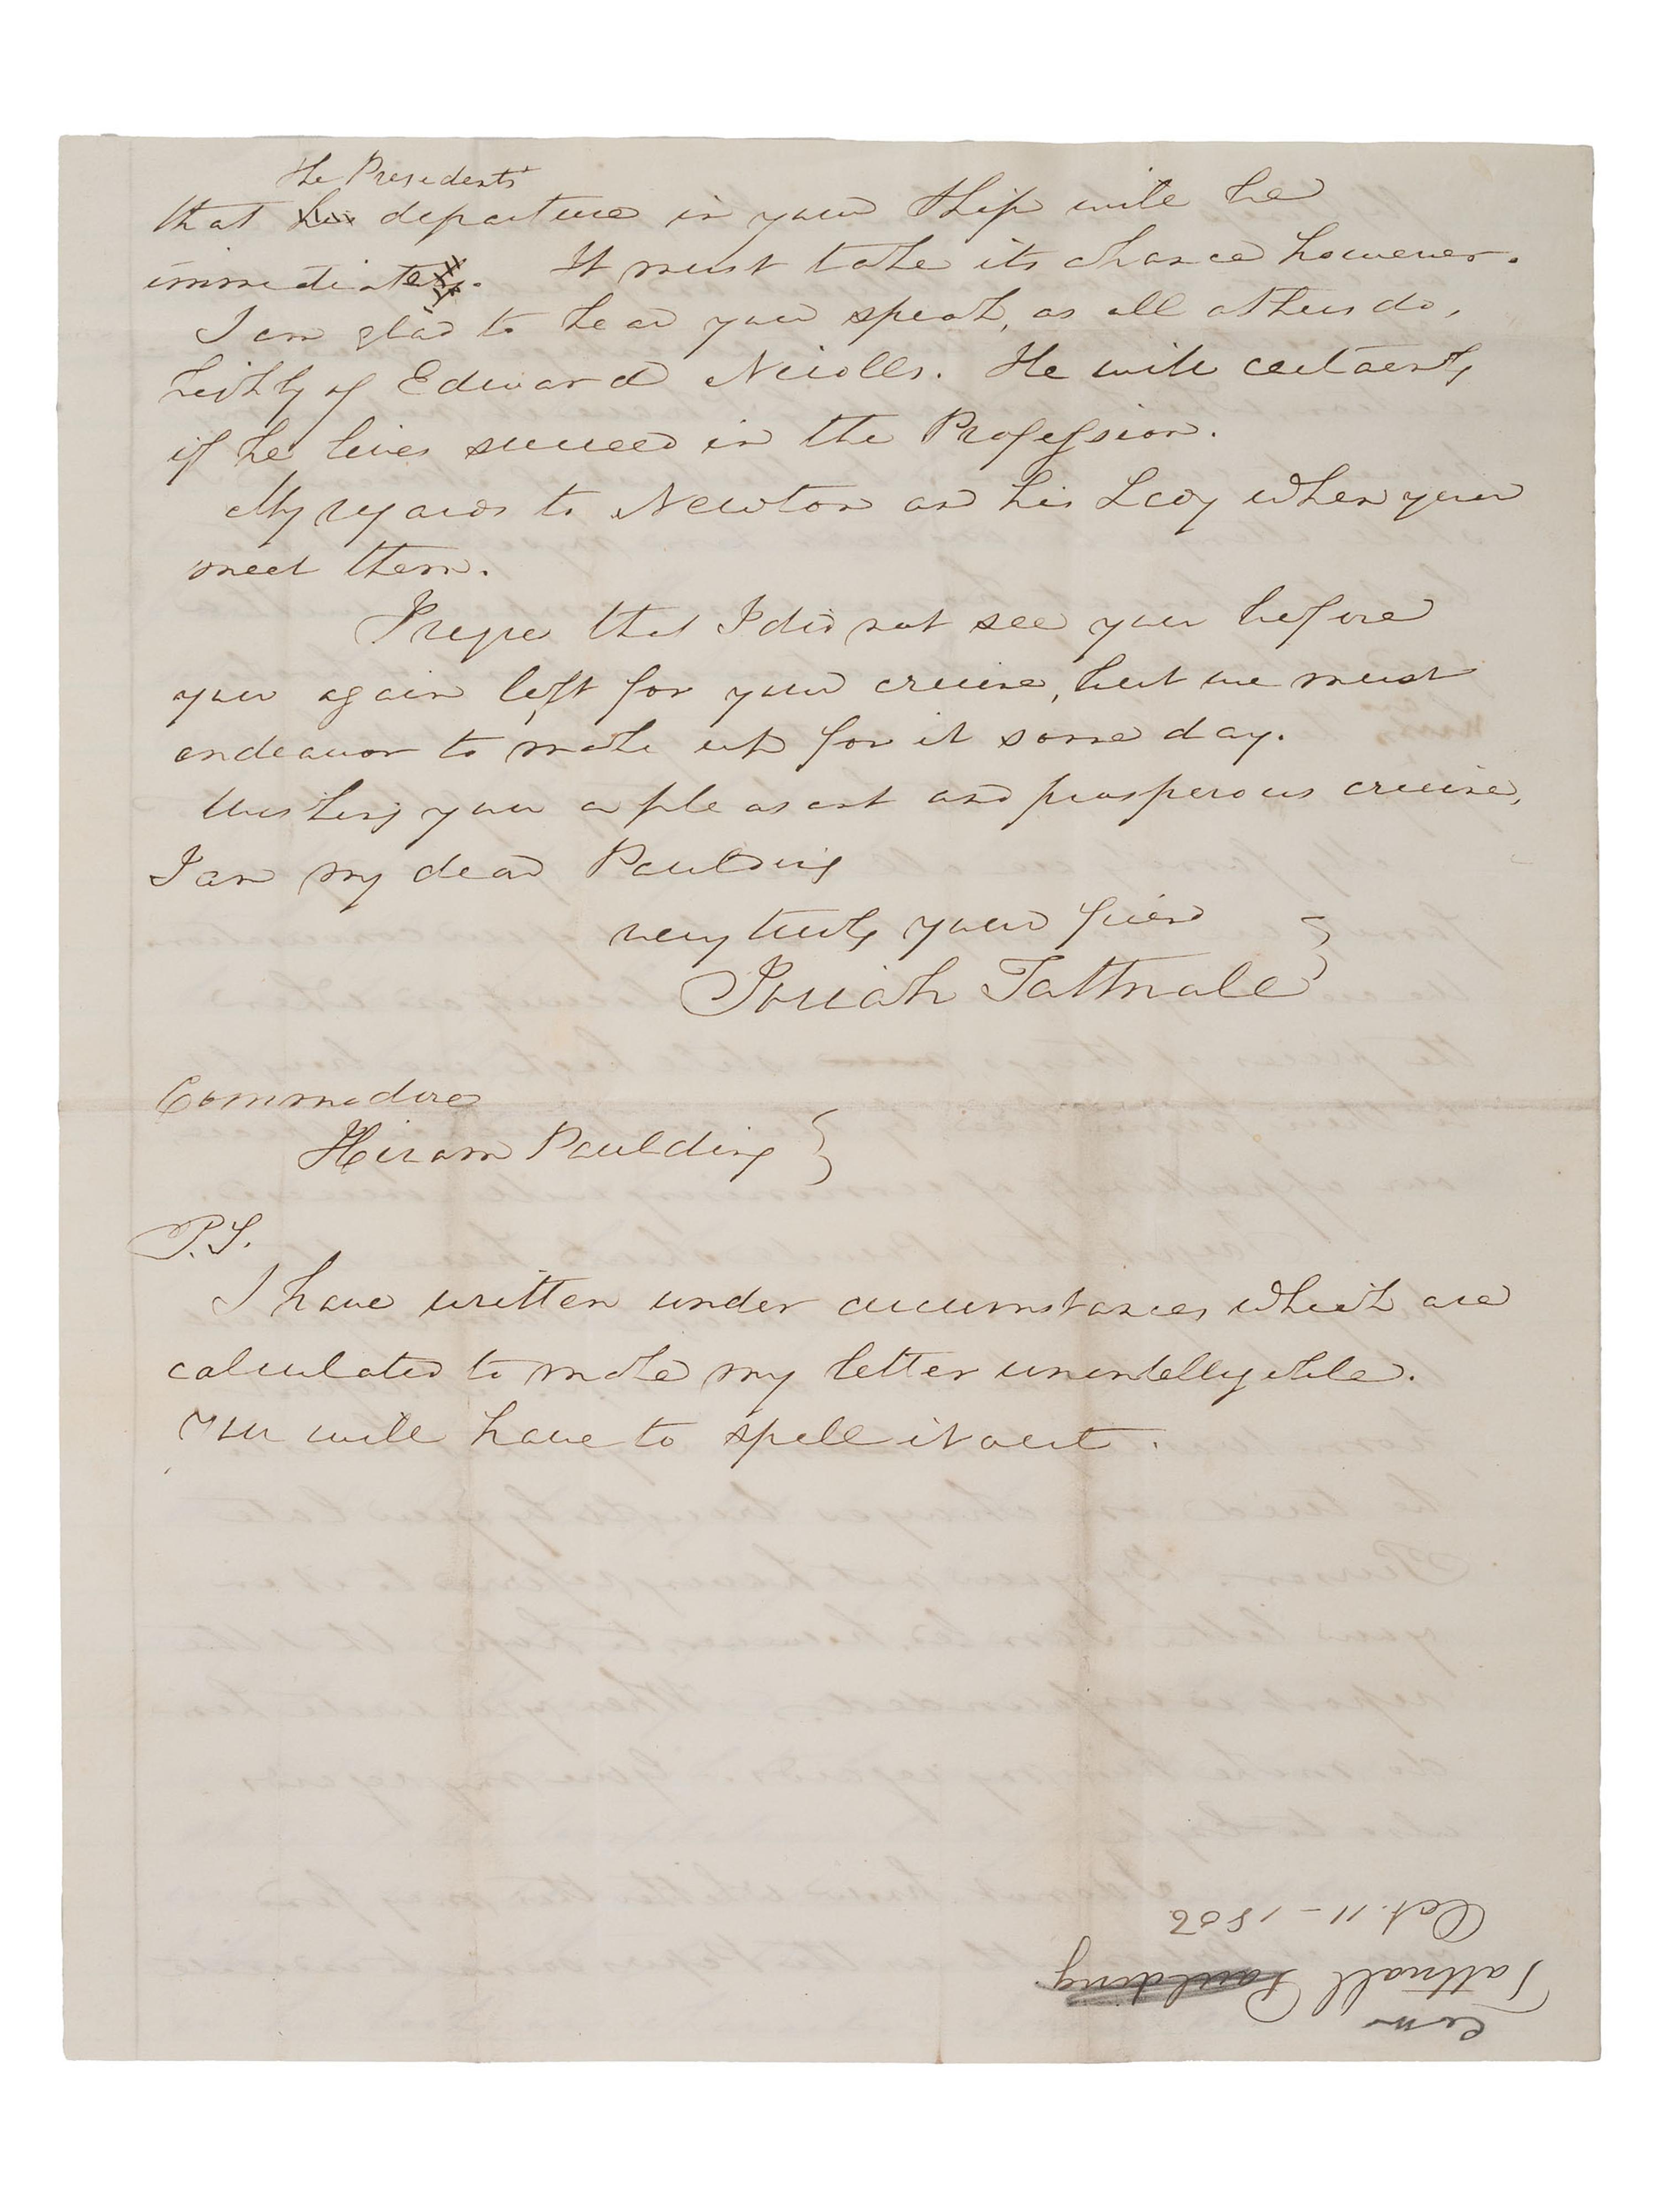 the Presidents
that his departure in your ship will be
immediate. It must take its chance however.
I am glad to hear you speak, as all others do,
highly of Edward Nicolls. He will certainly,
if he lives succeed in the Profession.
My regards to Newton and his Lady when you
meet them.
I regret that I did not see you before
you again left for your cruise, but we must
endeavor to make up for it some day.
Wishing you a pleasant and prosperous cruise,
I am my dear Paulding
very truly your friend
Josiah Tattnall
Commodore
Hiram Paulding
P.S.
I have written under circumstances which are
calculated to make my letter unintelligible.
You will have to spell it out.
Com
Tattnall Paulding
Oct. 11 - 1856